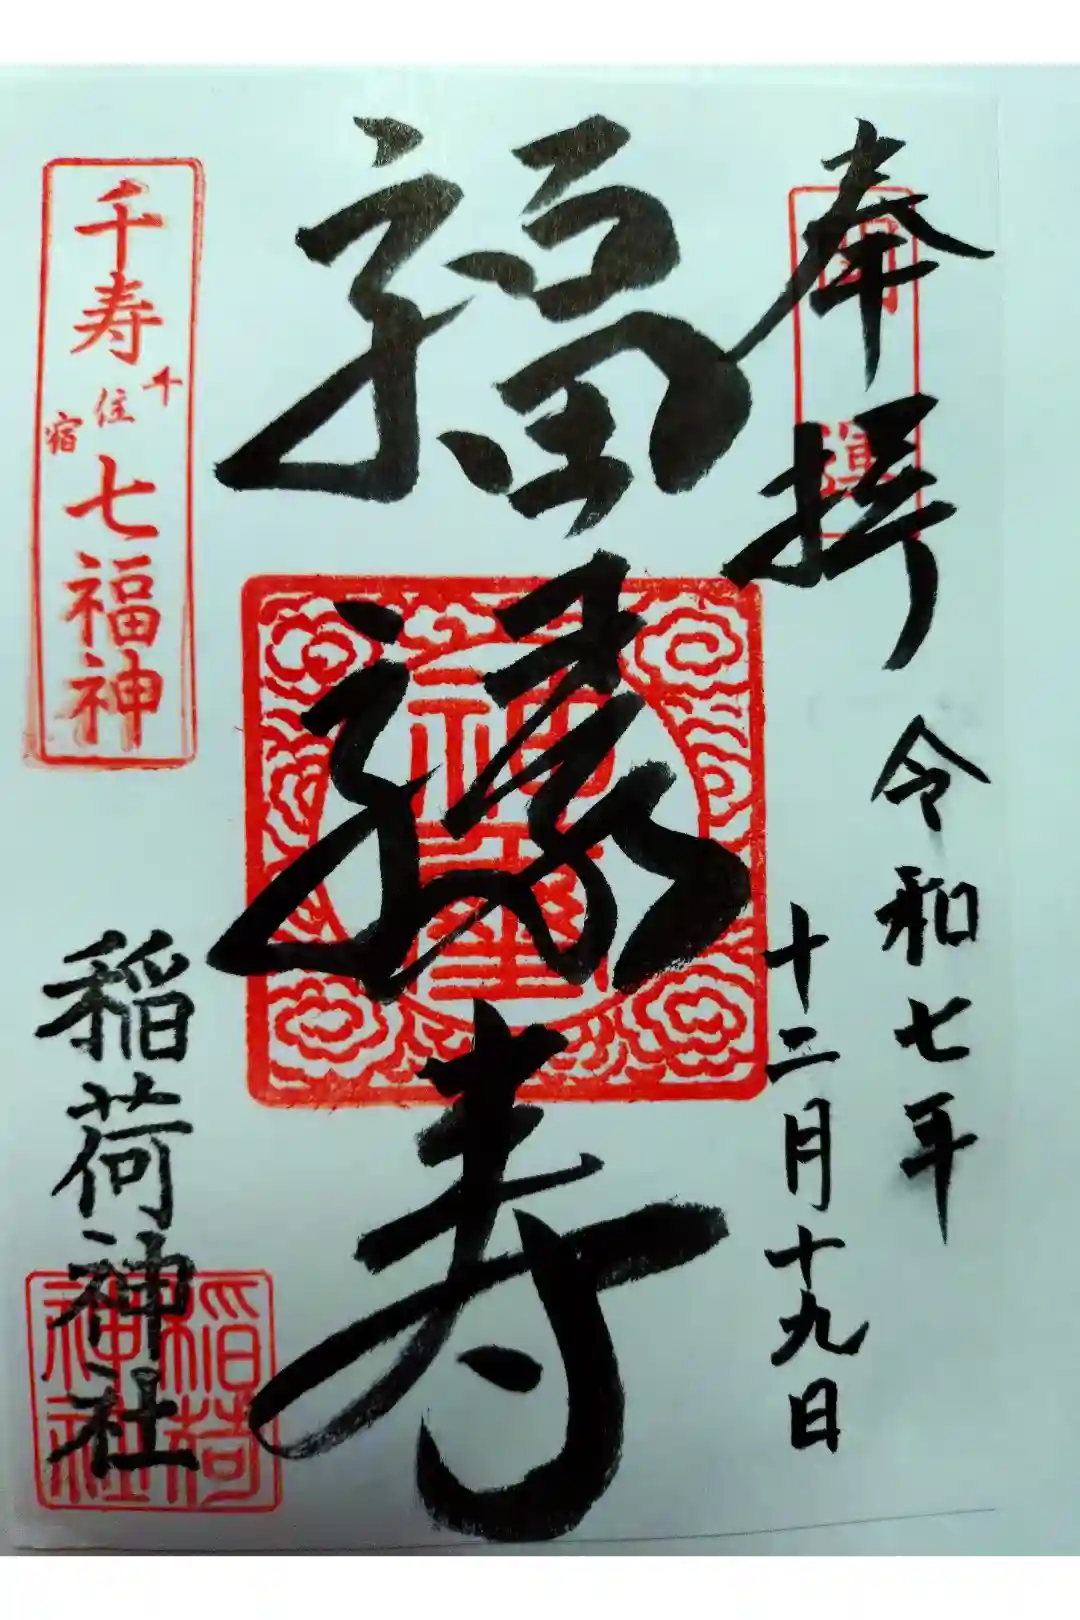 奉拝
開運
令和七年
十二月十九日
福禄寿
神璽
千寿七福神
千住宿
稲荷神社
稲荷神社